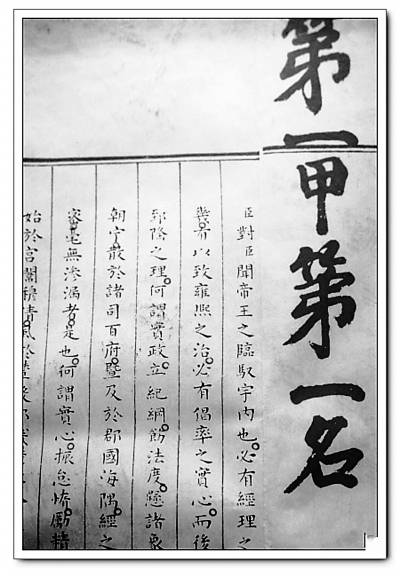 第一甲第一名
臣對臣聞帝王之臨馭宇內也必有經理之
有以致雍熙之治必有倡率之實心而後
郅隆之理何謂實政立紀綱飭法度懸諸象
朝宁散於諸司百府暨及於郡國海隅經之
密毫無滲漏者是也何謂實心振怠惰勵精
始於宮闈穆清